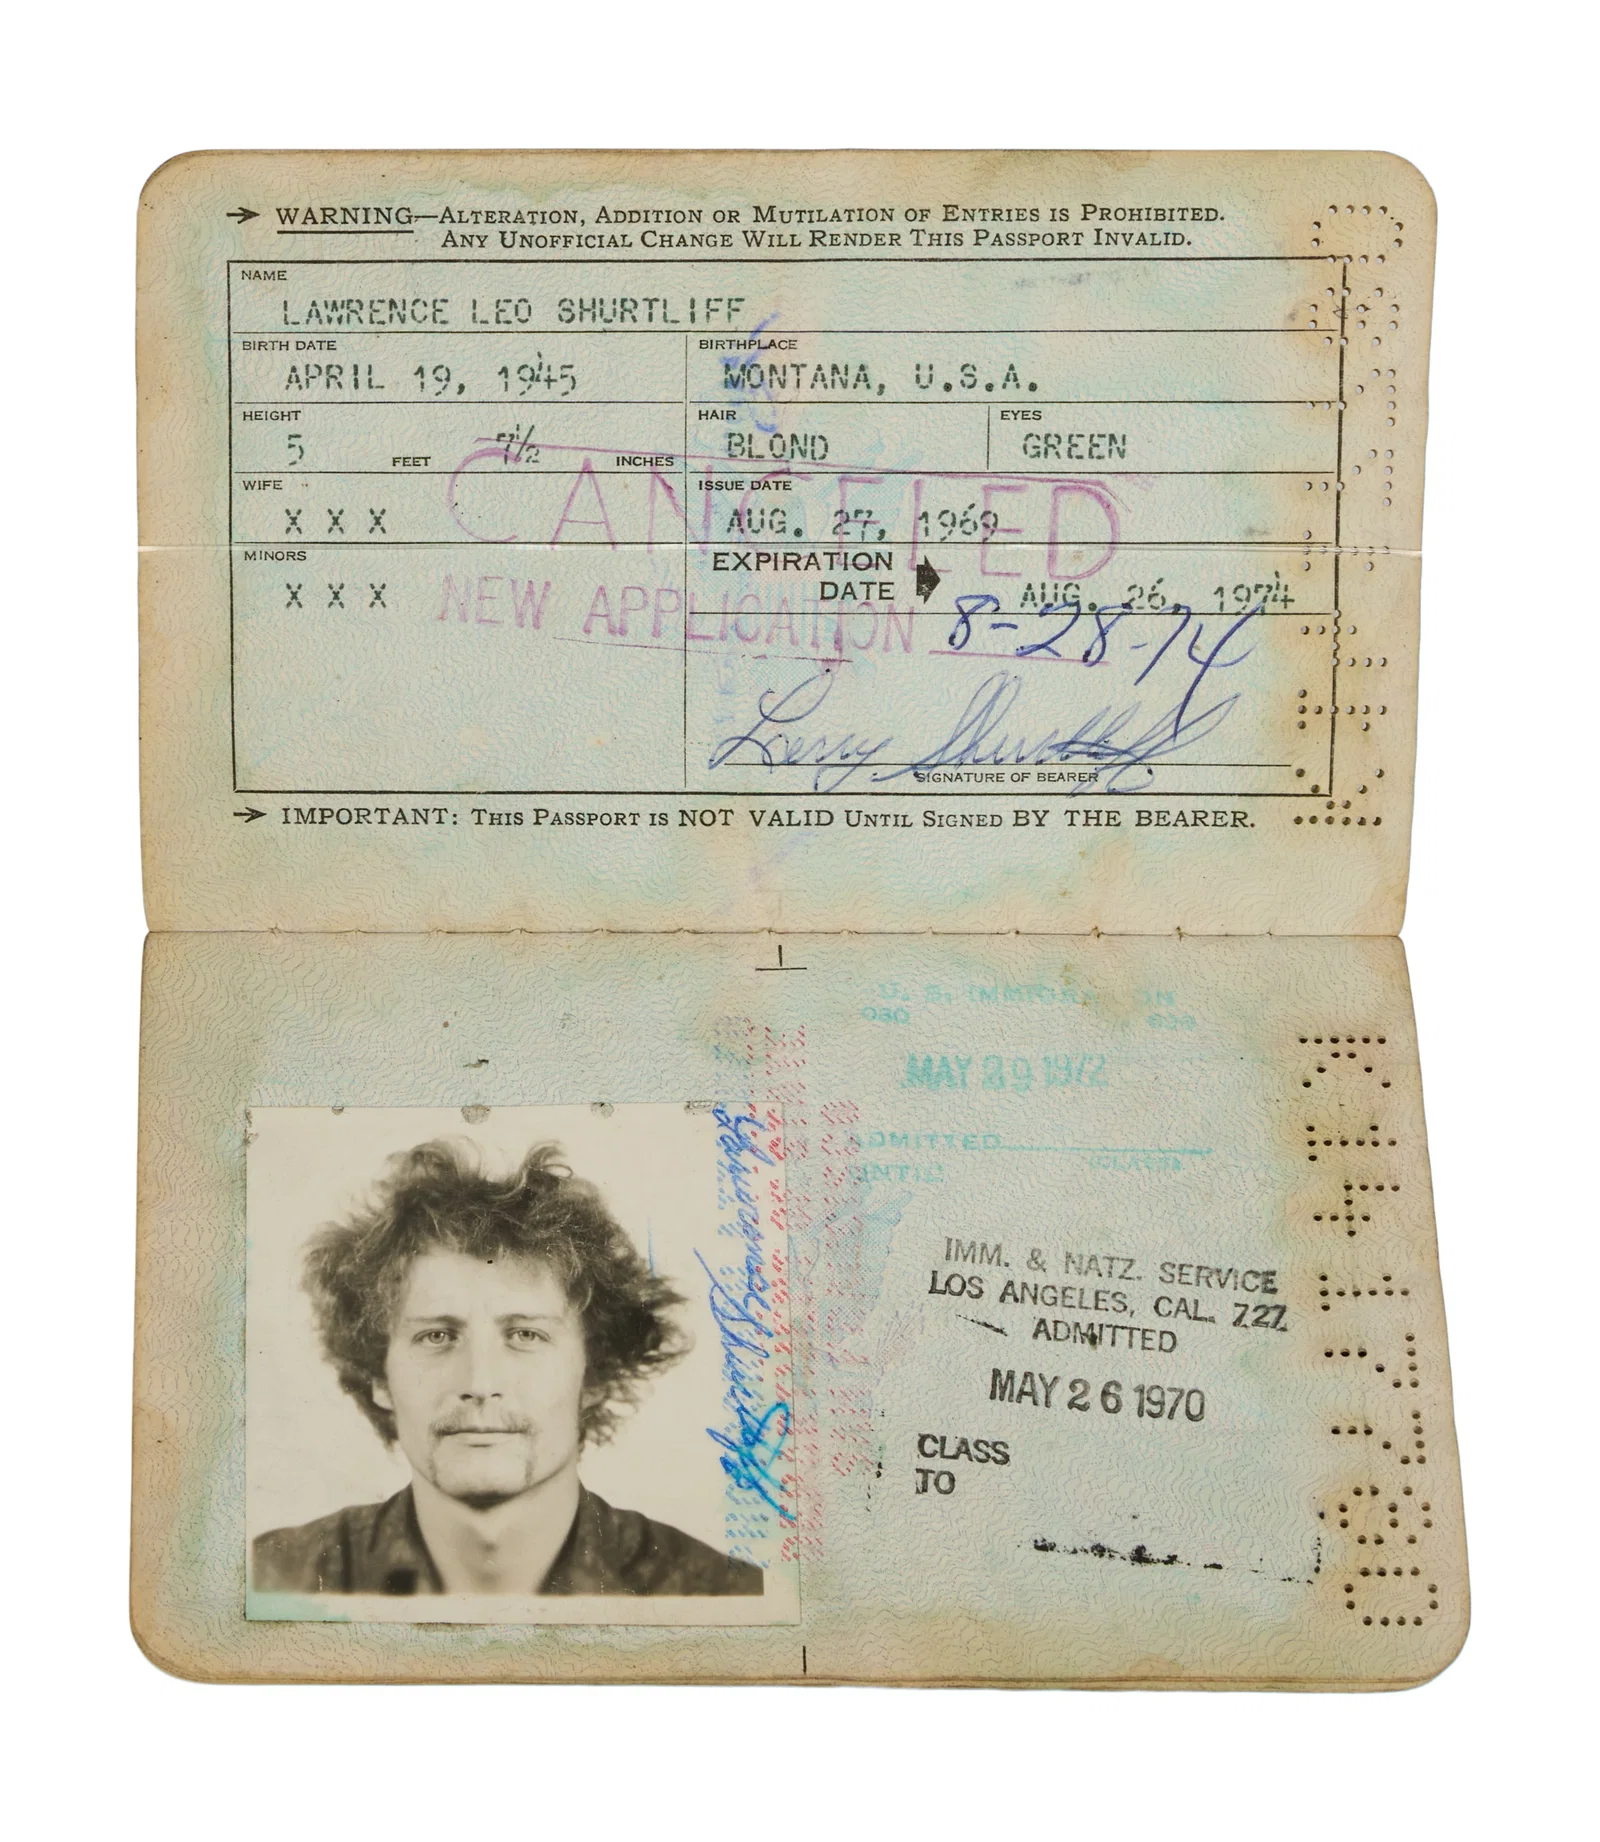 → WARNING—ALTERATION, ADDITION OR MUTILATION OF ENTRIES IS PROHIBITED.
ANY UNOFFICIAL CHANGE WILL RENDER THIS PASSPORT INVALID.
NAME
LAWRENCE LEO SHURTLIFF
BIRTH DATE
APRIL 19, 1945
BIRTHPLACE
MONTANA, U.S.A.
HEIGHT
5 FEET 7½ INCHES
HAIR
BLOND
EYES
GREEN
WIFE
X X X
ISSUE DATE
AUG. 27, 1969
MINORS
X X X
EXPIRATION DATE
AUG. 26, 1974
CANCELED
NEW APPLICATION 8-28-74
Larry Shurtliff
SIGNATURE OF BEARER
→ IMPORTANT: THIS PASSPORT IS NOT VALID UNTIL SIGNED BY THE BEARER.
U. S. IMMIGRATION
MAY 29 1972
ADMITTED
(CLASS)
UNTIL
Lawrence Shurtliff
IMM. & NATZ. SERVICE
LOS ANGELES, CAL. 727
ADMITTED
MAY 26 1970
CLASS
TO